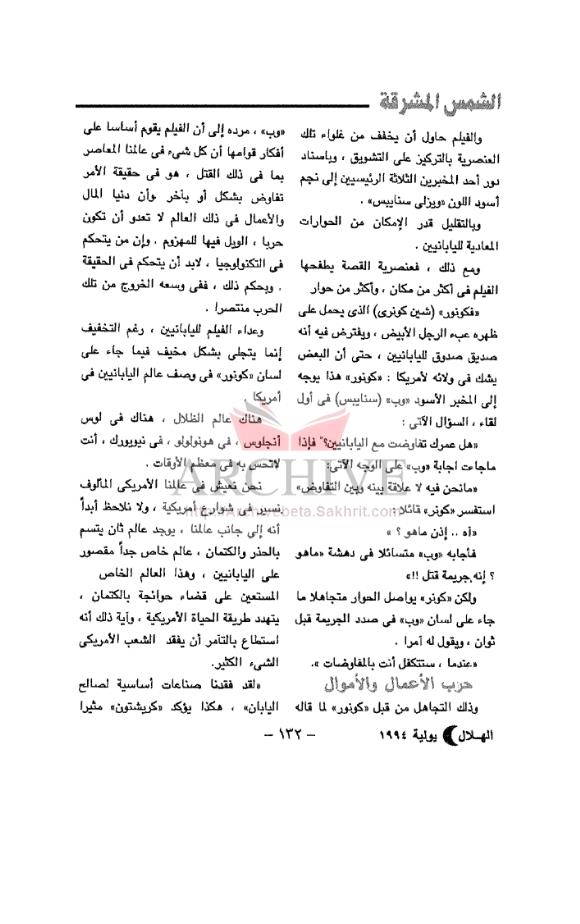 الشمس المشرقة
والفيلم حاول أن يخفف من غلواء تلك
العنصرية بالتركيز على التشويق ، وباسناد
دور أحد المخبرين الثلاثة الرئيسيين إلى نجم
أسود اللون «ويزلى سنايبس» .
وبالتقليل قدر الإمكان من الحوارات
المعادية لليابانيين .
ومع ذلك ، فعنصرية القصة يطفحها
الفيلم فى أكثر من مكان ، وأكثر من حوار
«فكونور» (شين كونرى) الذى يحمل على
ظهره عبء الرجل الأبيض ، ويفترض فيه أنه
صديق صدوق لليابانيين ، حتى أن البعض
يشك فى ولائه لأمريكا : «كونور» هذا يوجه
إلى المخبر الأسود «وب» (سنايبس) فى أول
لقاء ، السؤال الآتى :
«هل عمرك تفاوضت مع اليابانيين؟" فإذا
ماجاءت اجابة «وب» على الوجه الآتى:
«مانحن فيه لا علاقة بينه وبين التفاوض»
استفسر «كونر» قائلا:
«آه .. إذن ماهو ؟ »
فأجابه «وب» متسائلا فى دهشة «ماهو
؟ إنه جريمة قتل !!»
ولكن «كونر» يواصل الحوار متجاهلا ما
جاء على لسان «وب» فى صدد الجريمة قبل
ثوان ، ويقول له آمرا .
«عندما ، ستتكفل أنت بالمفاوضات ».
حرب الأعمال والأموال
وذلك التجاهل من قبل «كونور» لما قاله
«وب» ، مرده إلى أن الفيلم يقوم أساسا على
أفكار قوامها أن كل شىء فى عالمنا المعاصر
بما فى ذلك القتل ، هو فى حقيقة الأمر
تفاوض بشكل أو بآخر وأن دنيا المال
والأعمال فى ذلك العالم لا تعدو أن تكون
حربا ، الويل فيها للمهزوم . وإن من يتحكم
فى التكنولوجيا ، لابد أن يتحكم فى الحقيقة
. وبحكم ذلك ، ففى وسعه الخروج من تلك
الحرب منتصرا .
وعداء الفيلم لليابانيين ، رغم التخفيف
إنما يتجلى بشكل مخيف فيما جاء على
لسان «كونور» فى وصف عالم اليابانيين فى
أمريكا .
هناك عالم الظلال ، هناك فى لوس
أنجلوس ، فى هونولولو ، فى نيويورك ، أنت
لاتحس به فى معظم الأوقات .
نحن نعيش فى عالمنا الأمريكى المألوف
نسير فى شوارع أمريكية ، ولا نلاحظ أبداً
أنه إلى جانب عالمنا ، يوجد عالم ثان يتسم
بالحذر والكتمان ، عالم خاص جداً مقصور
على اليابانيين ، وهذا العالم الخاص
المستعين على قضاء حوائجه بالكتمان ،
يتهدد طريقة الحياة الأمريكية ، وآية ذلك أنه
استطاع بالتآمر أن يفقد الشعب الأمريكى
الشىء الكثير.
«لقد فقدنا صناعات أساسية لصالح
اليابان» ، هكذا يؤكد «كريشتون» مثيرا
الهلال يولية ١٩٩٤
– ١٣٢ –
ARCHIVE